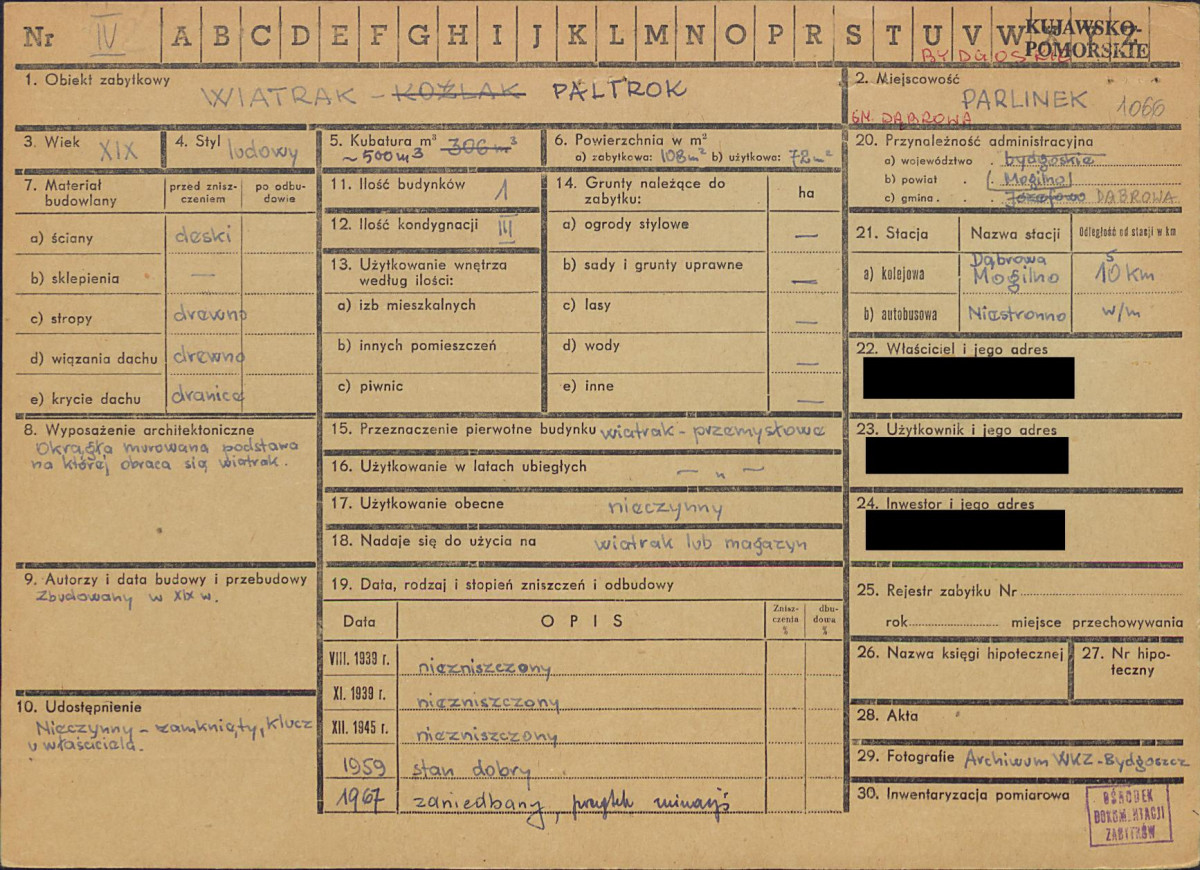 Nr IV A B C D E F G H I J K L M N O P R S T U V W X Y Z
KUJAWSKO-
POMORSKIE
BYDGOSKIE
1. Obiekt zabytkowy
WIATRAK - KOŹLAK PALTROK
2. Miejscowość
PARLINEK 1066
GM. DĄBROWA
3. Wiek XIX
4. Styl ludowy
5. Kubatura m³ 306 m³
~ 500 m³
6. Powierzchnia w m²
a) zabytkowa: 108 m² b) użytkowa: 72 m²
7. Materiał budowlany
przed znisz-
czeniem
po odbu-
dowie
a) ściany deski
b) sklepienia —
c) stropy drewno
d) wiązania dachu drewno
e) krycie dachu dranice
8. Wyposażenie architektoniczne
Okrągła murowana podstawa
na której obraca się wiatrak.
9. Autorzy i data budowy i przebudowy
Zbudowany w XIX w.
10. Udostępnienie
Nieczynny – zamknięty, klucz
u właściciela.
11. Ilość budynków 1
12. Ilość kondygnacji III
13. Użytkowanie wnętrza
według ilości:
a) izb mieszkalnych
b) innych pomieszczeń
c) piwnic
14. Grunty należące do
zabytku:
ha
a) ogrody stylowe —
b) sady i grunty uprawne —
c) lasy —
d) wody —
e) inne —
15. Przeznaczenie pierwotne budynku wiatrak - przemysłowe
16. Użytkowanie w latach ubiegłych — „ —
17. Użytkowanie obecne nieczynny
18. Nadaje się do użycia na wiatrak lub magazyn
19. Data, rodzaj i stopień zniszczeń i odbudowy
Data
OPIS
Znisz-
czenia
%
dbu-
dowa
%
VIII. 1939 r. niezniszczony
XI. 1939 r. niezniszczony
XII. 1945 r. niezniszczony
1959 stan dobry
1967 zaniedbany,
20. Przynależność administracyjna
a) województwo bydgoskie
b) powiat (Mogilno)
c) gmina Józefowo DĄBROWA
21. Stacja
Nazwa stacji
Odległość od stacji w km
a) kolejowa
Dąbrowa 5
Mogilno 10 km
b) autobusowa Niestronno w/m
22. Właściciel i jego adres
23. Użytkownik i jego adres
24. Inwestor i jego adres
25. Rejestr zabytku Nr
rok miejsce przechowywania
26. Nazwa księgi hipotecznej
27. Nr hipo-
teczny
28. Akta
29. Fotografie Archiwum WKZ-Bydgoszcz
30. Inwentaryzacja pomiarowa
OŚRODEK
DOKUMENTACJI
ZABYTKÓW